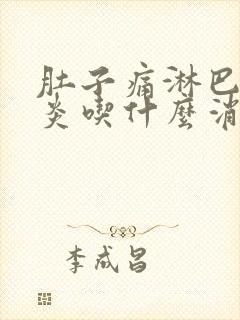 肚子痛淋巴
炎喫什麼消
李成昌